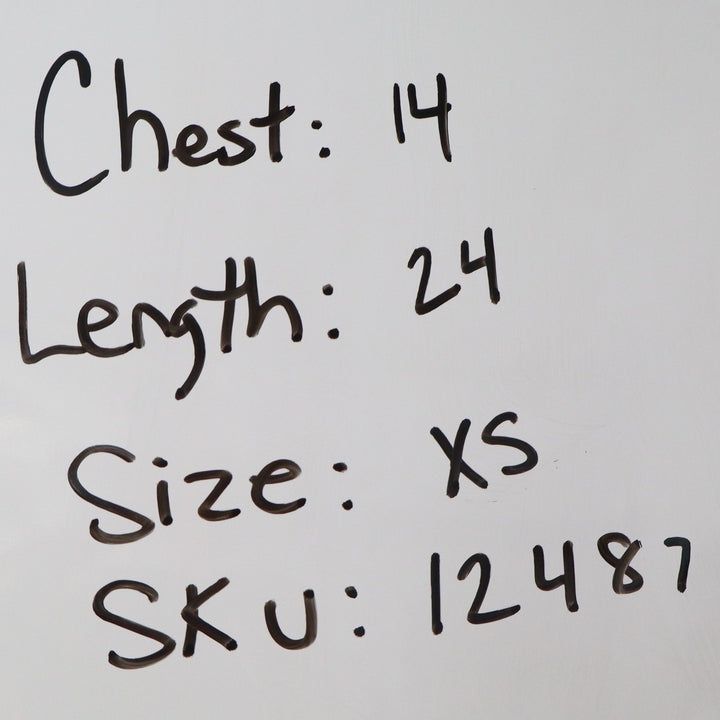 Chest: 14
Length: 24
Size: XS
SKU: 12487